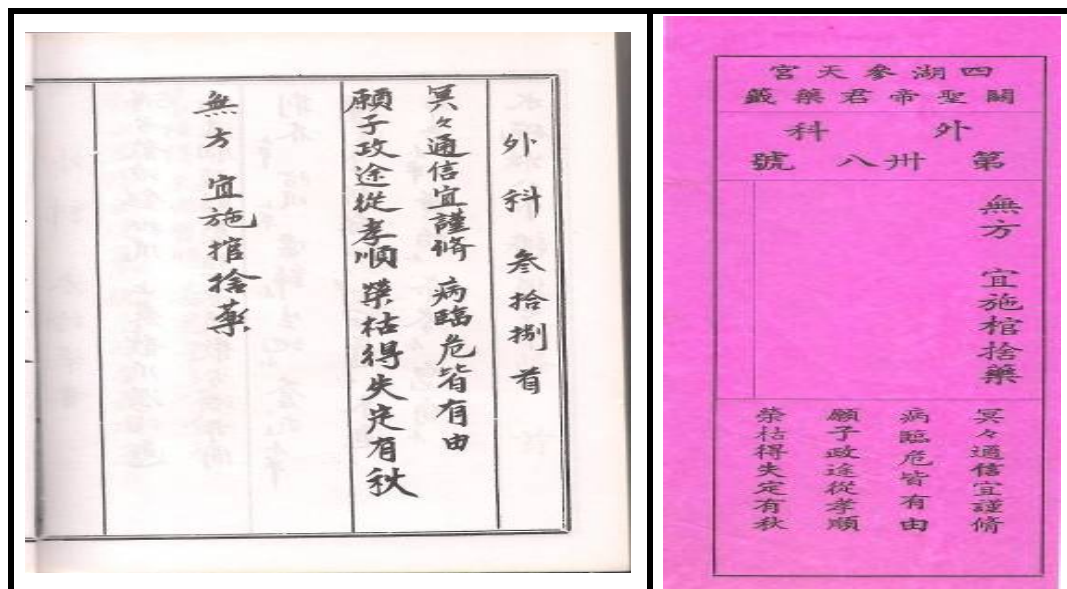 外科 叁拾捌首
冥々通信宜謹脩 病臨危皆有由
願子政途從孝順 榮枯得失定有秋
無方 宜施棺捨藥
四湖參天宮
關聖帝君藥籤
外科
第卅八號
無方 宜施棺捨藥
冥々通信宜謹脩
病臨危皆有由
願子政途從孝順
榮枯得失定有秋